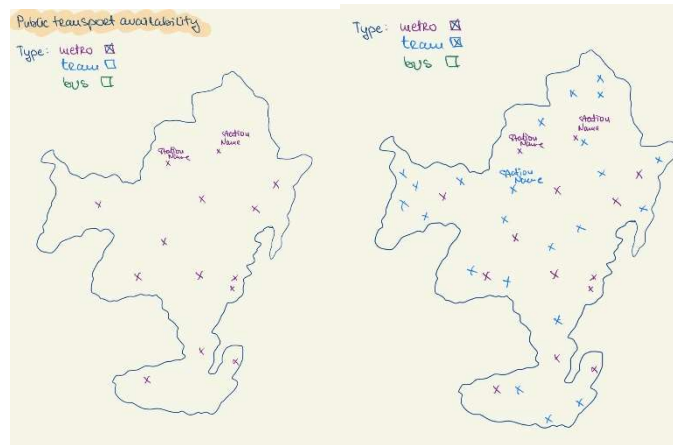 Public transport availability
Type: metro
team
bus
Station
Name
Station
Name
Type: metro
team
bus
Station
Name
Station
Name
Station
Name